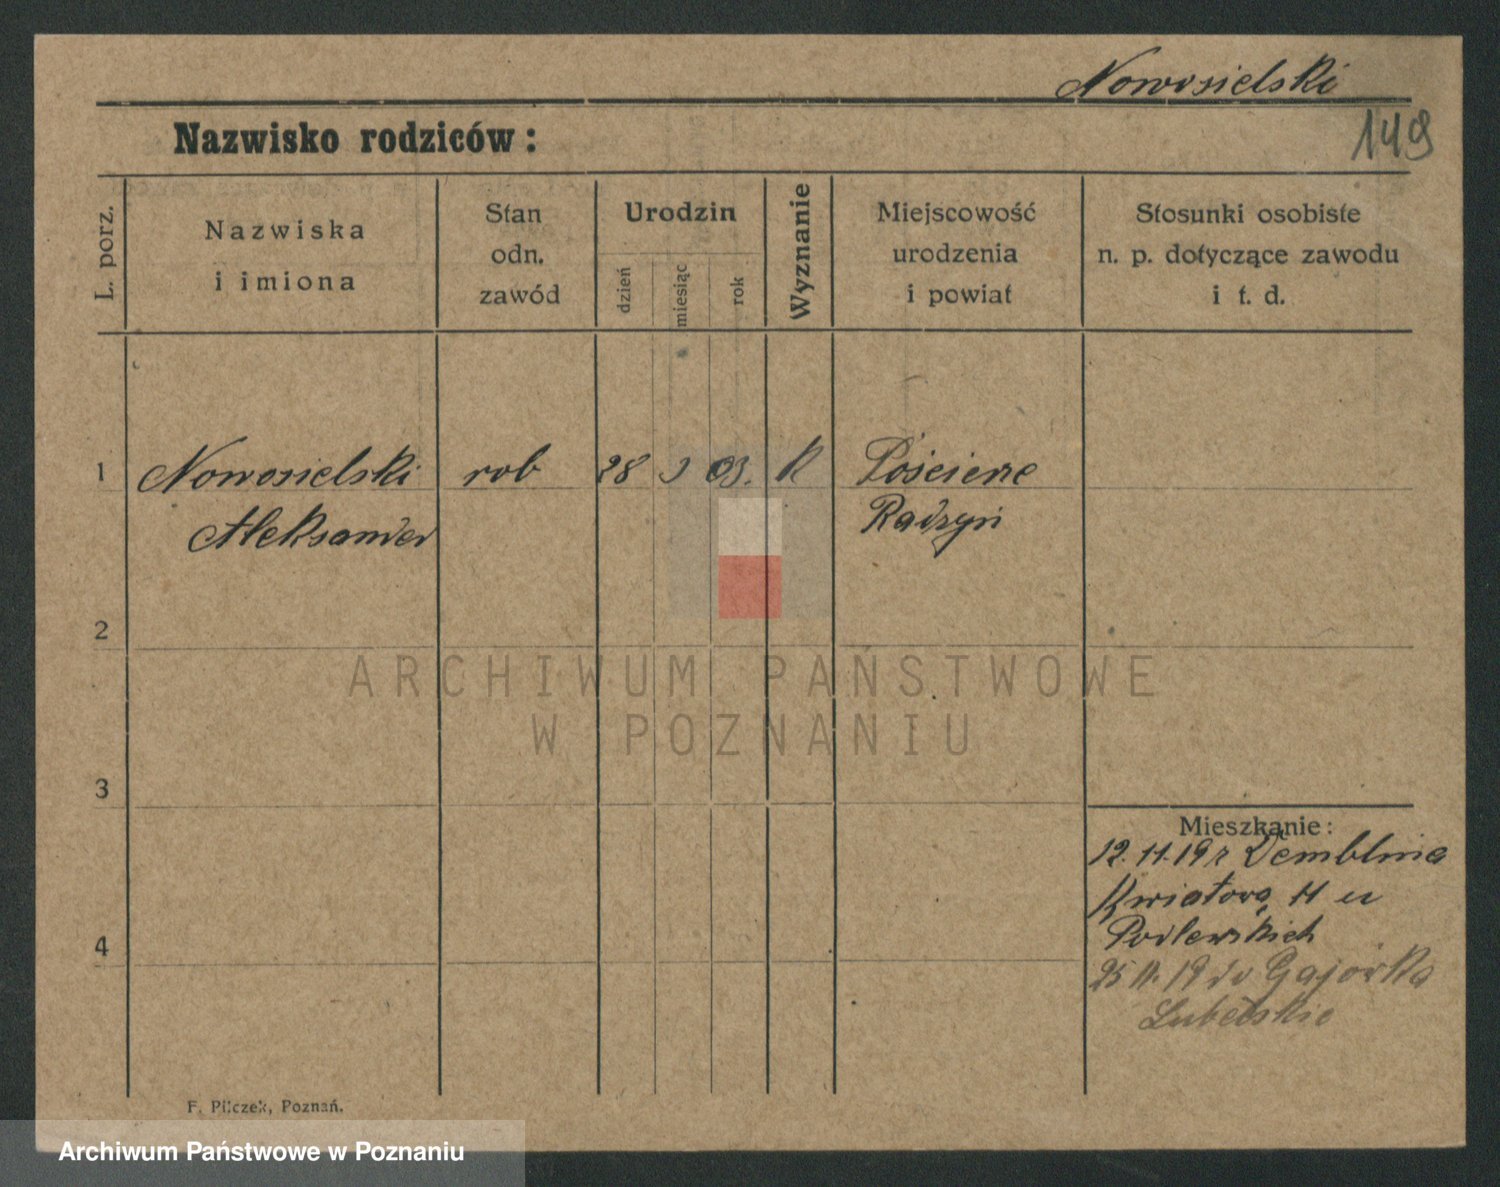 Nowosielski
149
Nazwisko rodziców:
L. porz.
Nazwiska
i imiona
Stan
odn.
zawód
Urodzin
dzień
miesiąc
rok
Wyznanie
Miejscowość
urodzenia
i powiat
Stosunki osobiste
n. p. dotyczące zawodu
i t. d.
1
Nowosielski rob 28 03. K
Aleksander Radzyń
2
ARCHIWUM PAŃSTWOWE
W POZNANIU
3
Mieszkanie:
12.11.19 z Demblina
Kwiatowa 11 u
Podlewskich
25.11.19 do Gajówka
Lubelskie
4
F. Pilczek, Poznań.
Archiwum Państwowe w Poznaniu